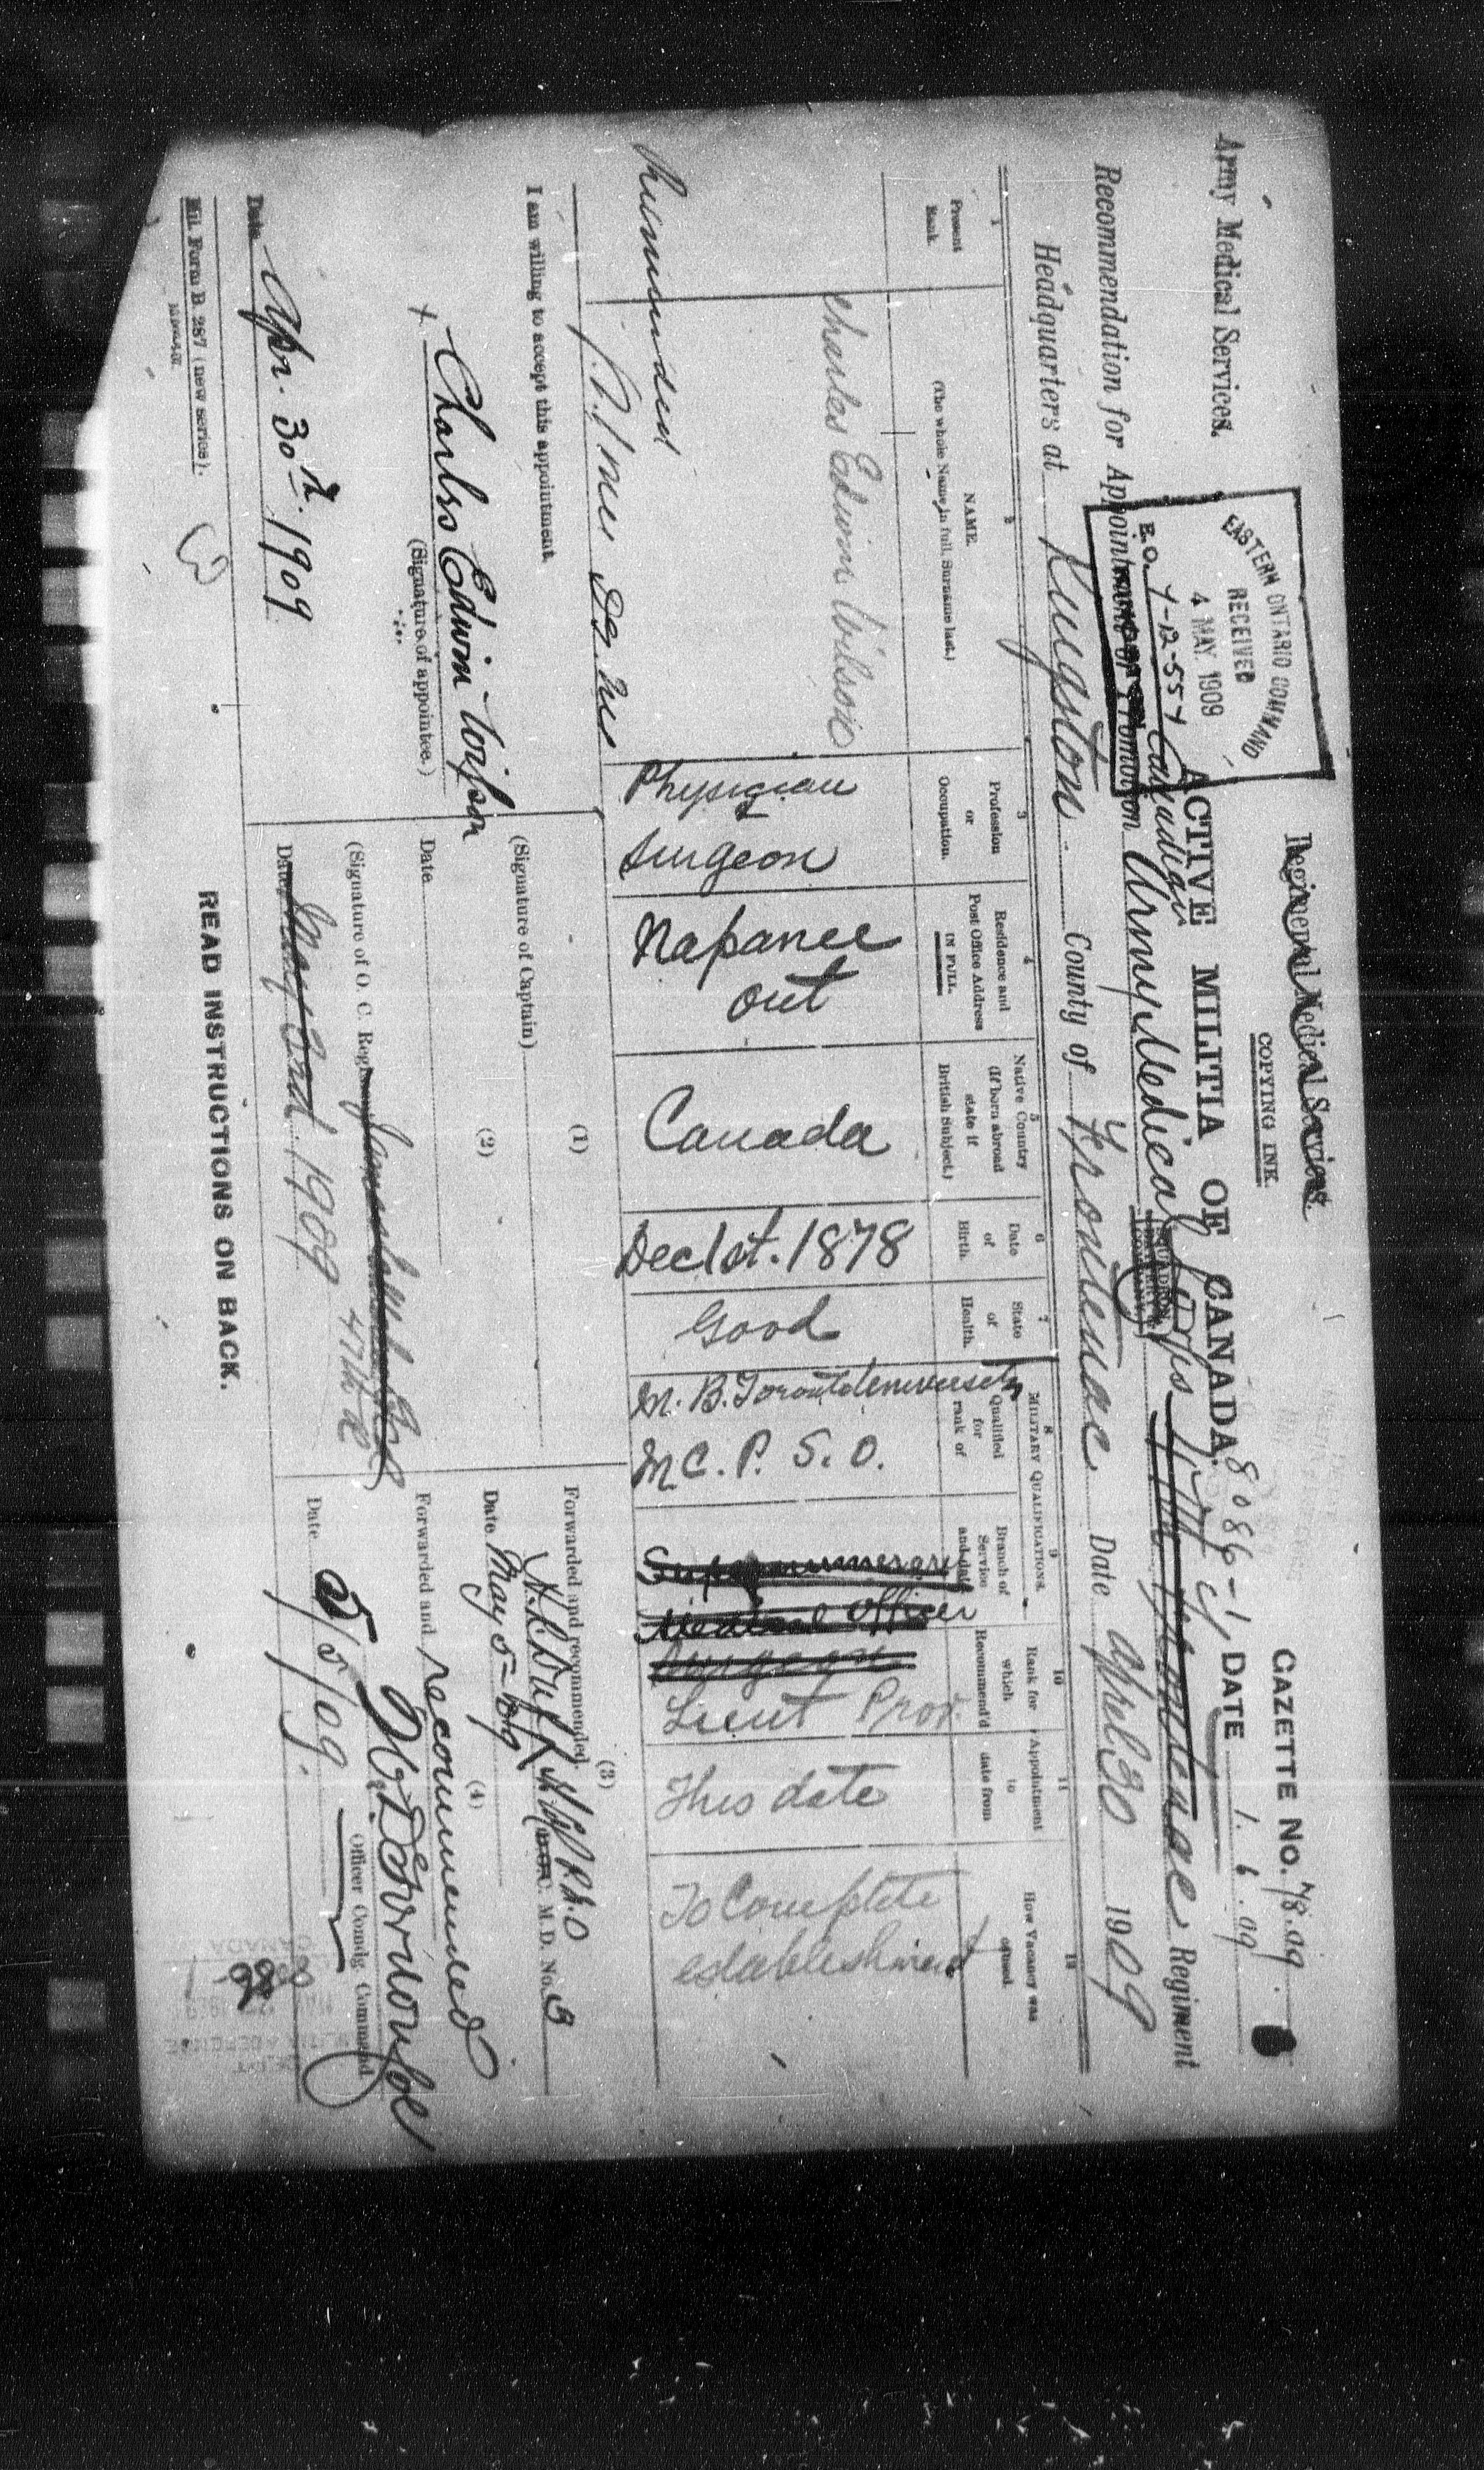 Regimental Medical Services.
Army Medical Services.
COPYING INK.
GAZETTE NO. 78.09
EASTERN ONTARIO COMMAND
RECEIVED
4 MAY. 1909
E.O. 7-12-554
ACTIVE MILITIA OF CANADA.
8086-1
DATE 1. 6. 09
Recommendation for Appointment or Promotion Canadian Army Medical Corps Regiment
SQUADRON,
BATTERY or
COMPANY.
Headquarters at Kingston County of Frontenac Date April 30 1909
1
Present
Rank.
2
NAME.
(The whole Name in full, Surname last.)
3
Profession
or
Occupation.
4
Residence and
Post Office Address
IN FULL.
5
Native Country
(If born abroad
state if
British Subject.)
6
Date
of
Birth.
7
State
of
Health.
MILITARY QUALIFICATIONS.
8
Qualified
for
rank of
9
Branch of
Service
and date
10
Rank for
which
Recommend'd
11
Appointment
to
date from
12
How Vacancy was
caused.
Charles Edwin Wilson
Physician
Surgeon
Napanee
Ont
Canada
Dec 1st. 1878
Good
M. B. Toronto University
M C. P. S. O.
Supernumerary
Medical Officer
Surgeon
Lieut Prov.
This date
To Complete
establishment
I am willing to accept this appointment.
+ Charles Edwin Wilson
(Signature of appointee.)
Date Apr. 30th. 1909
(1)
(Signature of Captain)
(2)
Date
(Signature of O. C. Regt.
47th R
Date May 2nd 1909
(3)
Forwarded and recommended.
C. M.D. No. 3
Date May 5-09
(4)
Forwarded and recommended
Officer Comdg. Command
Date 5/5/09.
Mil. Form B. 287 (new series).
READ INSTRUCTIONS ON BACK.